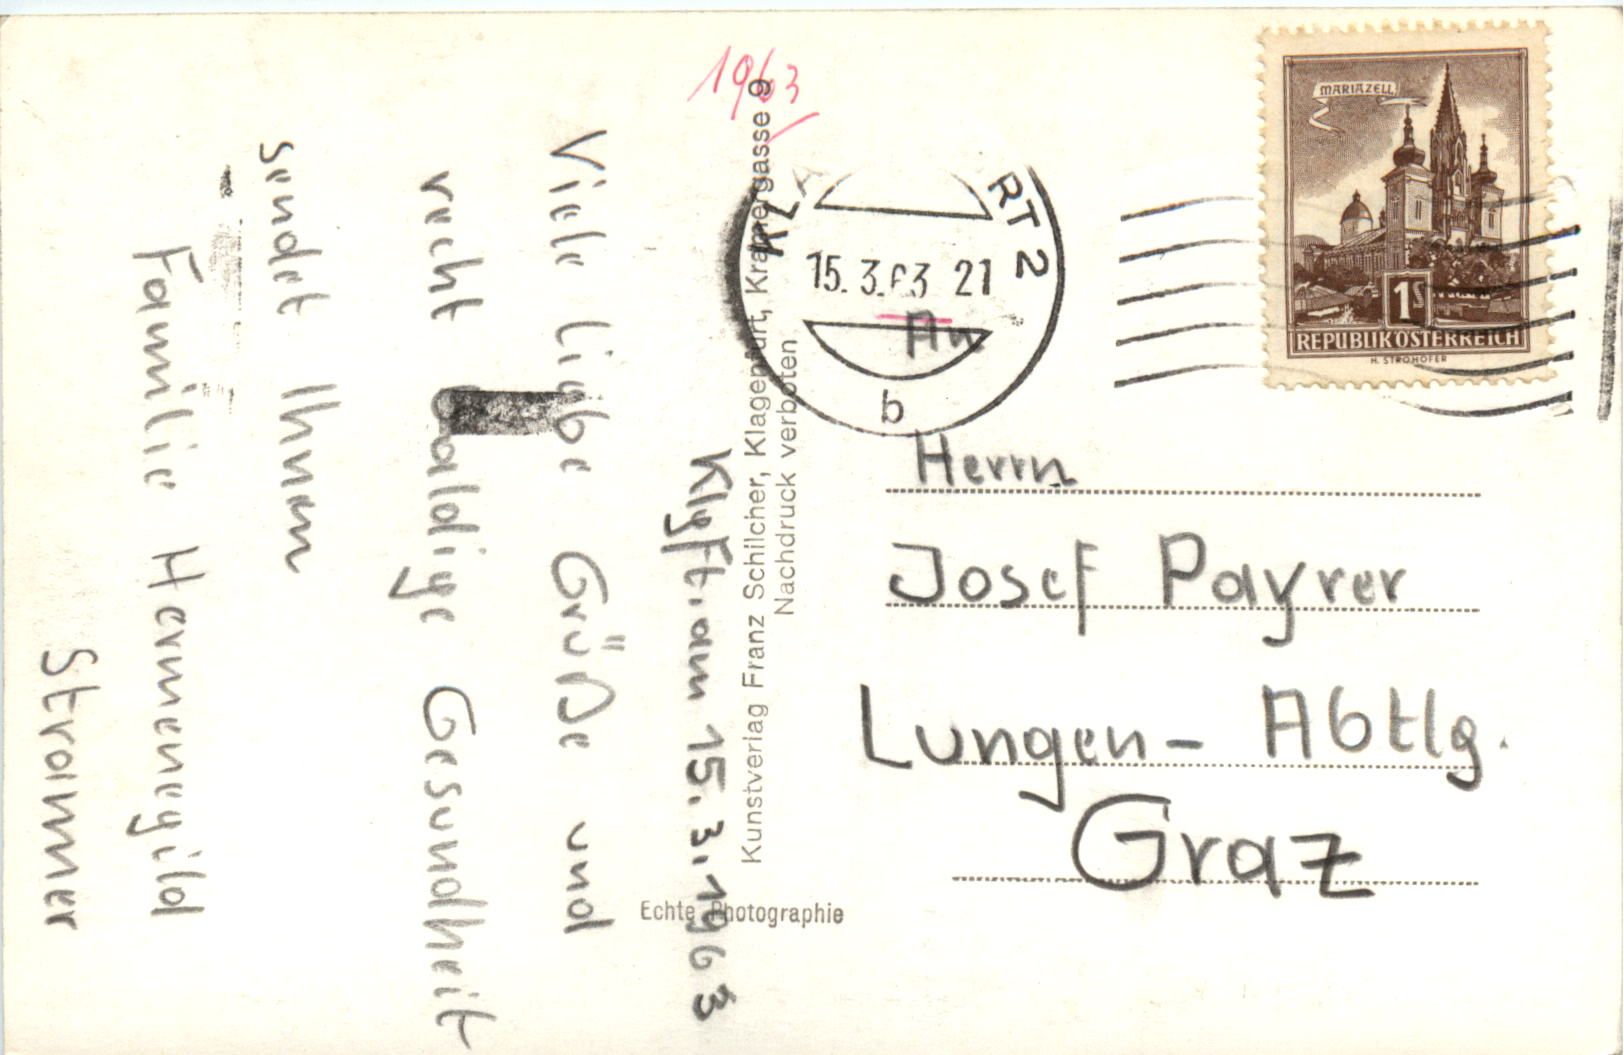 1963
Klgft. am 15.3.1963
Viele liebe Grüße und
recht baldige Gesundheit
sendet Ihnen
Familie Hermenegild
Stromer
Kunstverlag Franz Schilcher, Klagenfurt, Kramergasse 9
Nachdruck verboten
Echte Photographie
RT 2
15. 3. 63 21
b
MARIAZELL
1S
REPUBLIK ÖSTERREICH
H. STROHOFER
An
Herrn
Josef Payrer
Lungen - Abtlg.
Graz